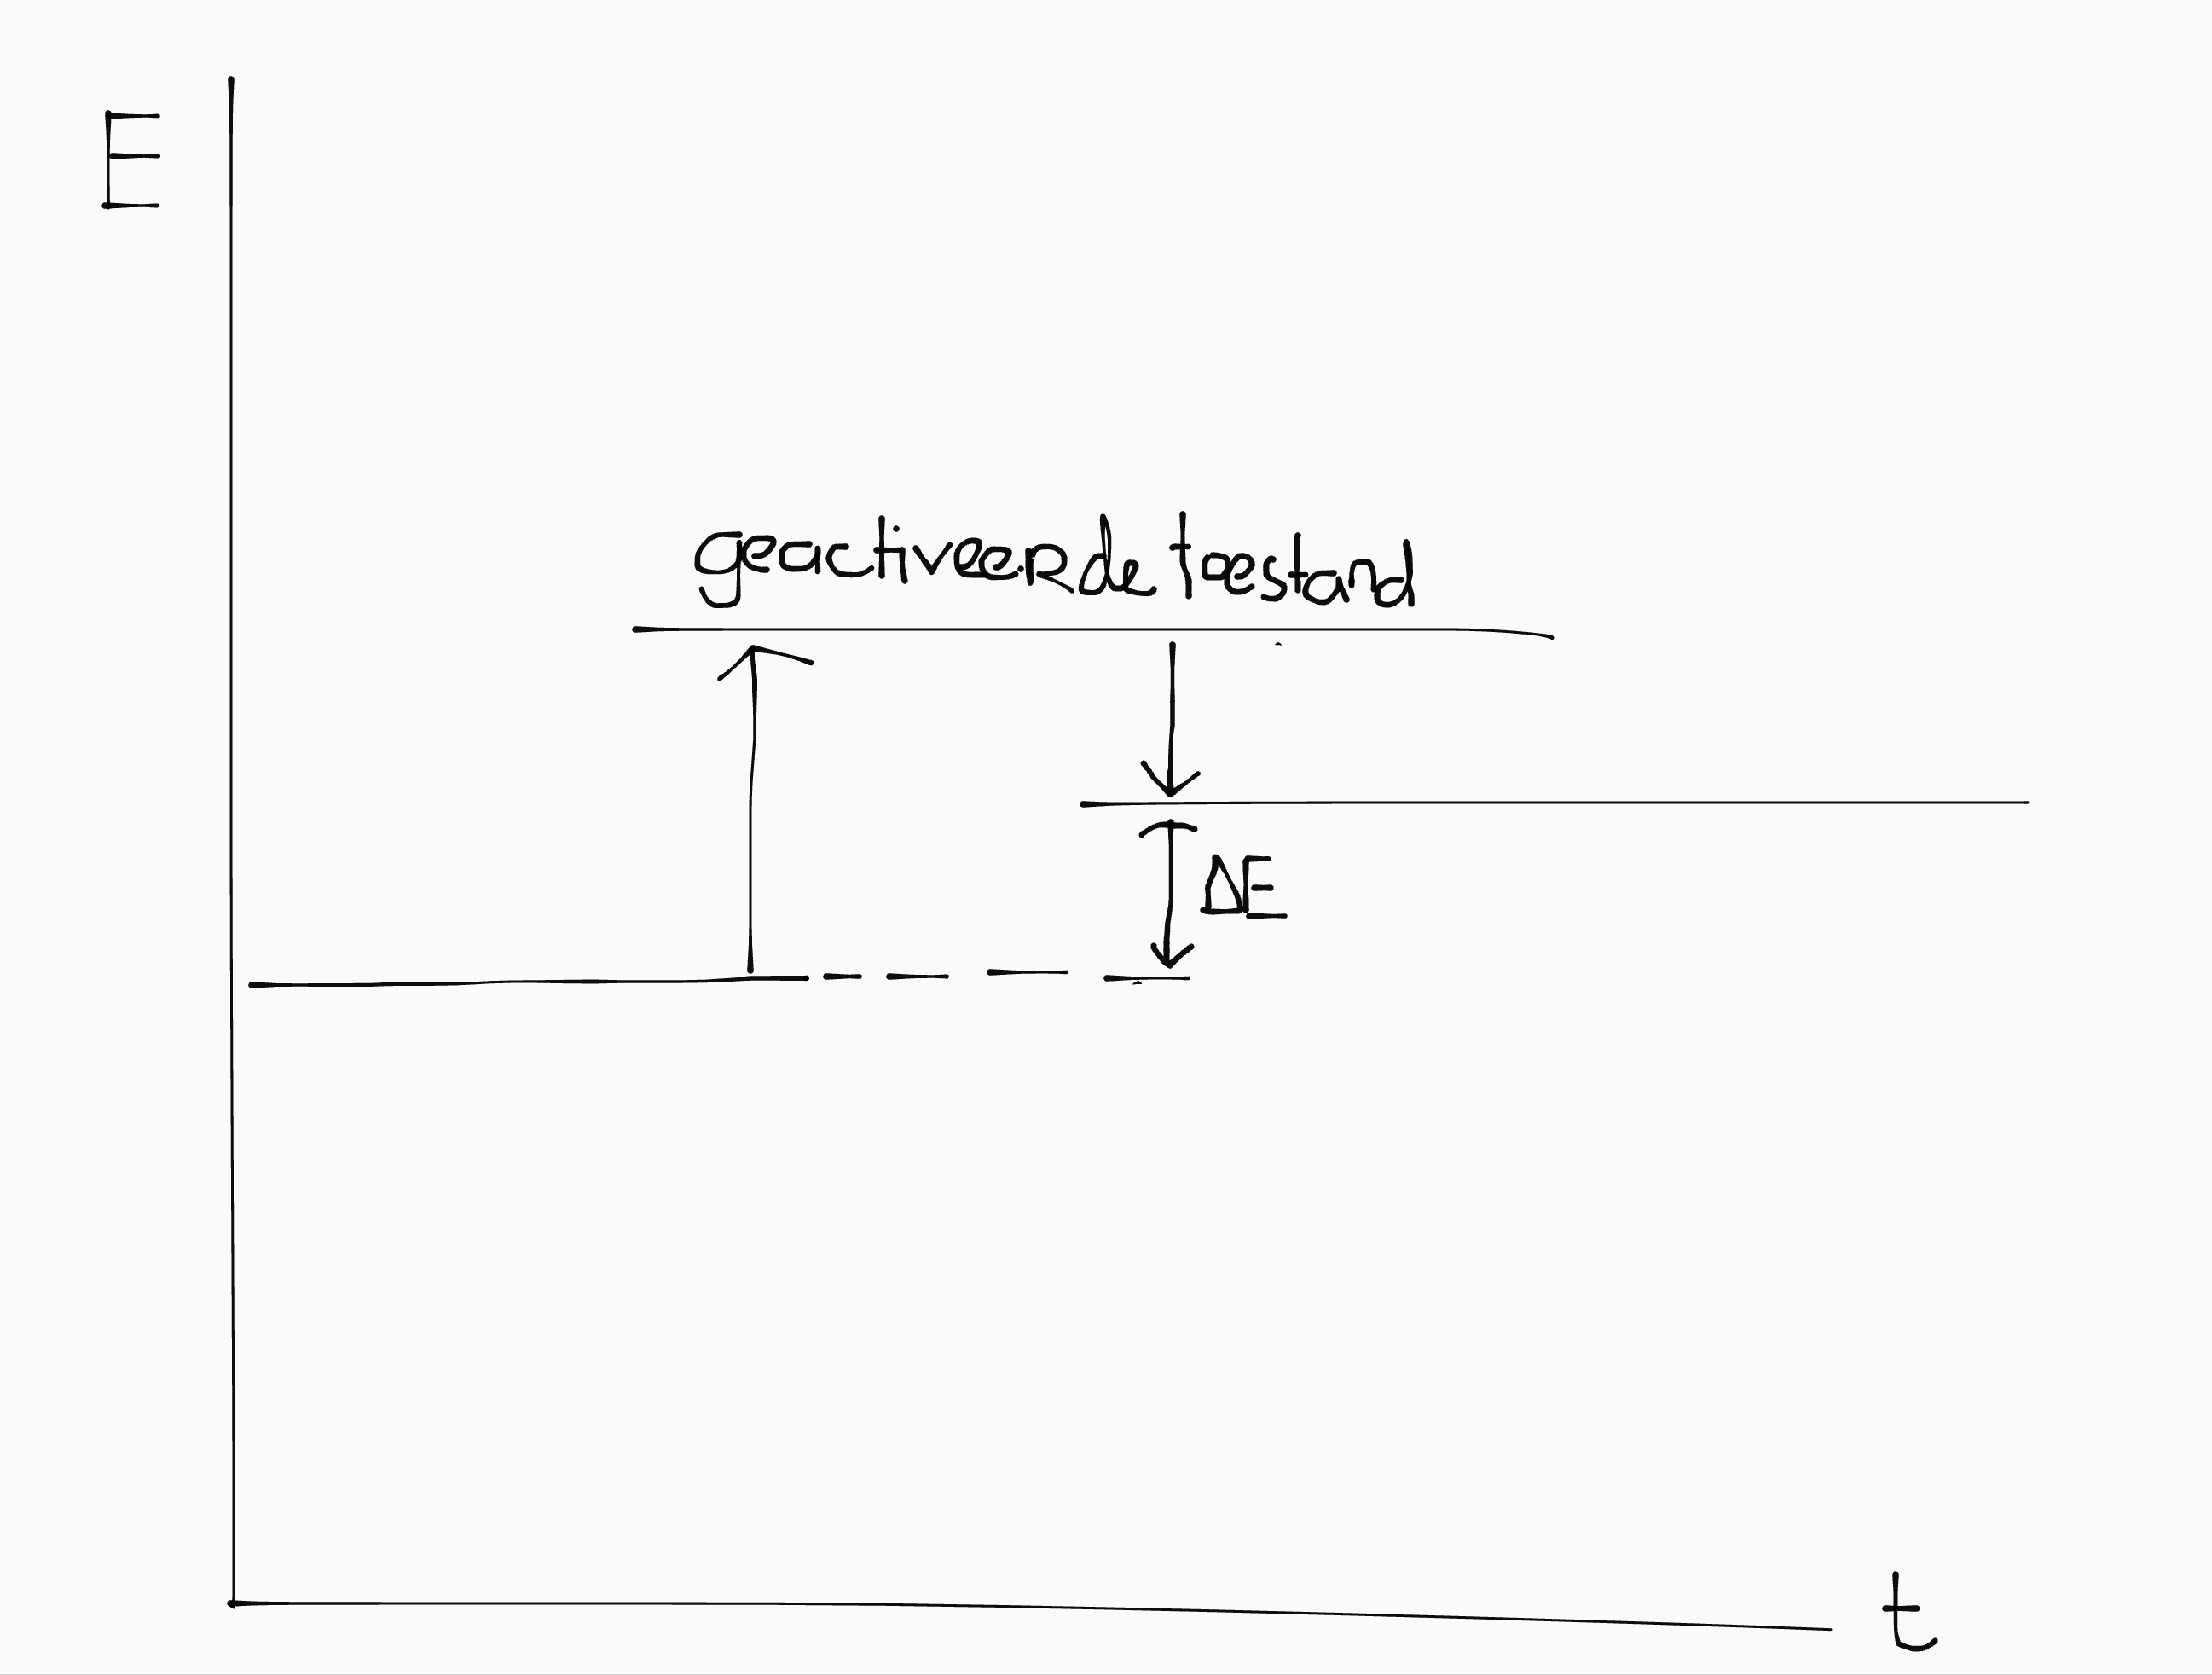 E
geactiveerde toestand
ΔE
t